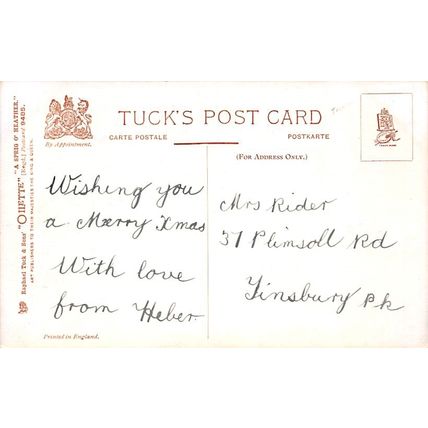 TUCK'S POST CARD
CARTE POSTALE
POSTKARTE
(FOR ADDRESS ONLY.)
By Appointment.
Raphael Tuck & Sons' "OILETTE" "A SPRIG O' HEATHER."
[Regd.] Postcard 9485.
ART PUBLISHERS TO THEIR MAJESTIES THE KING & QUEEN.
Wishing you
a Merry Xmas
With love
from Heber
Mrs Rider
37 Plimsoll Rd
Finsbury Pk
Printed in England.